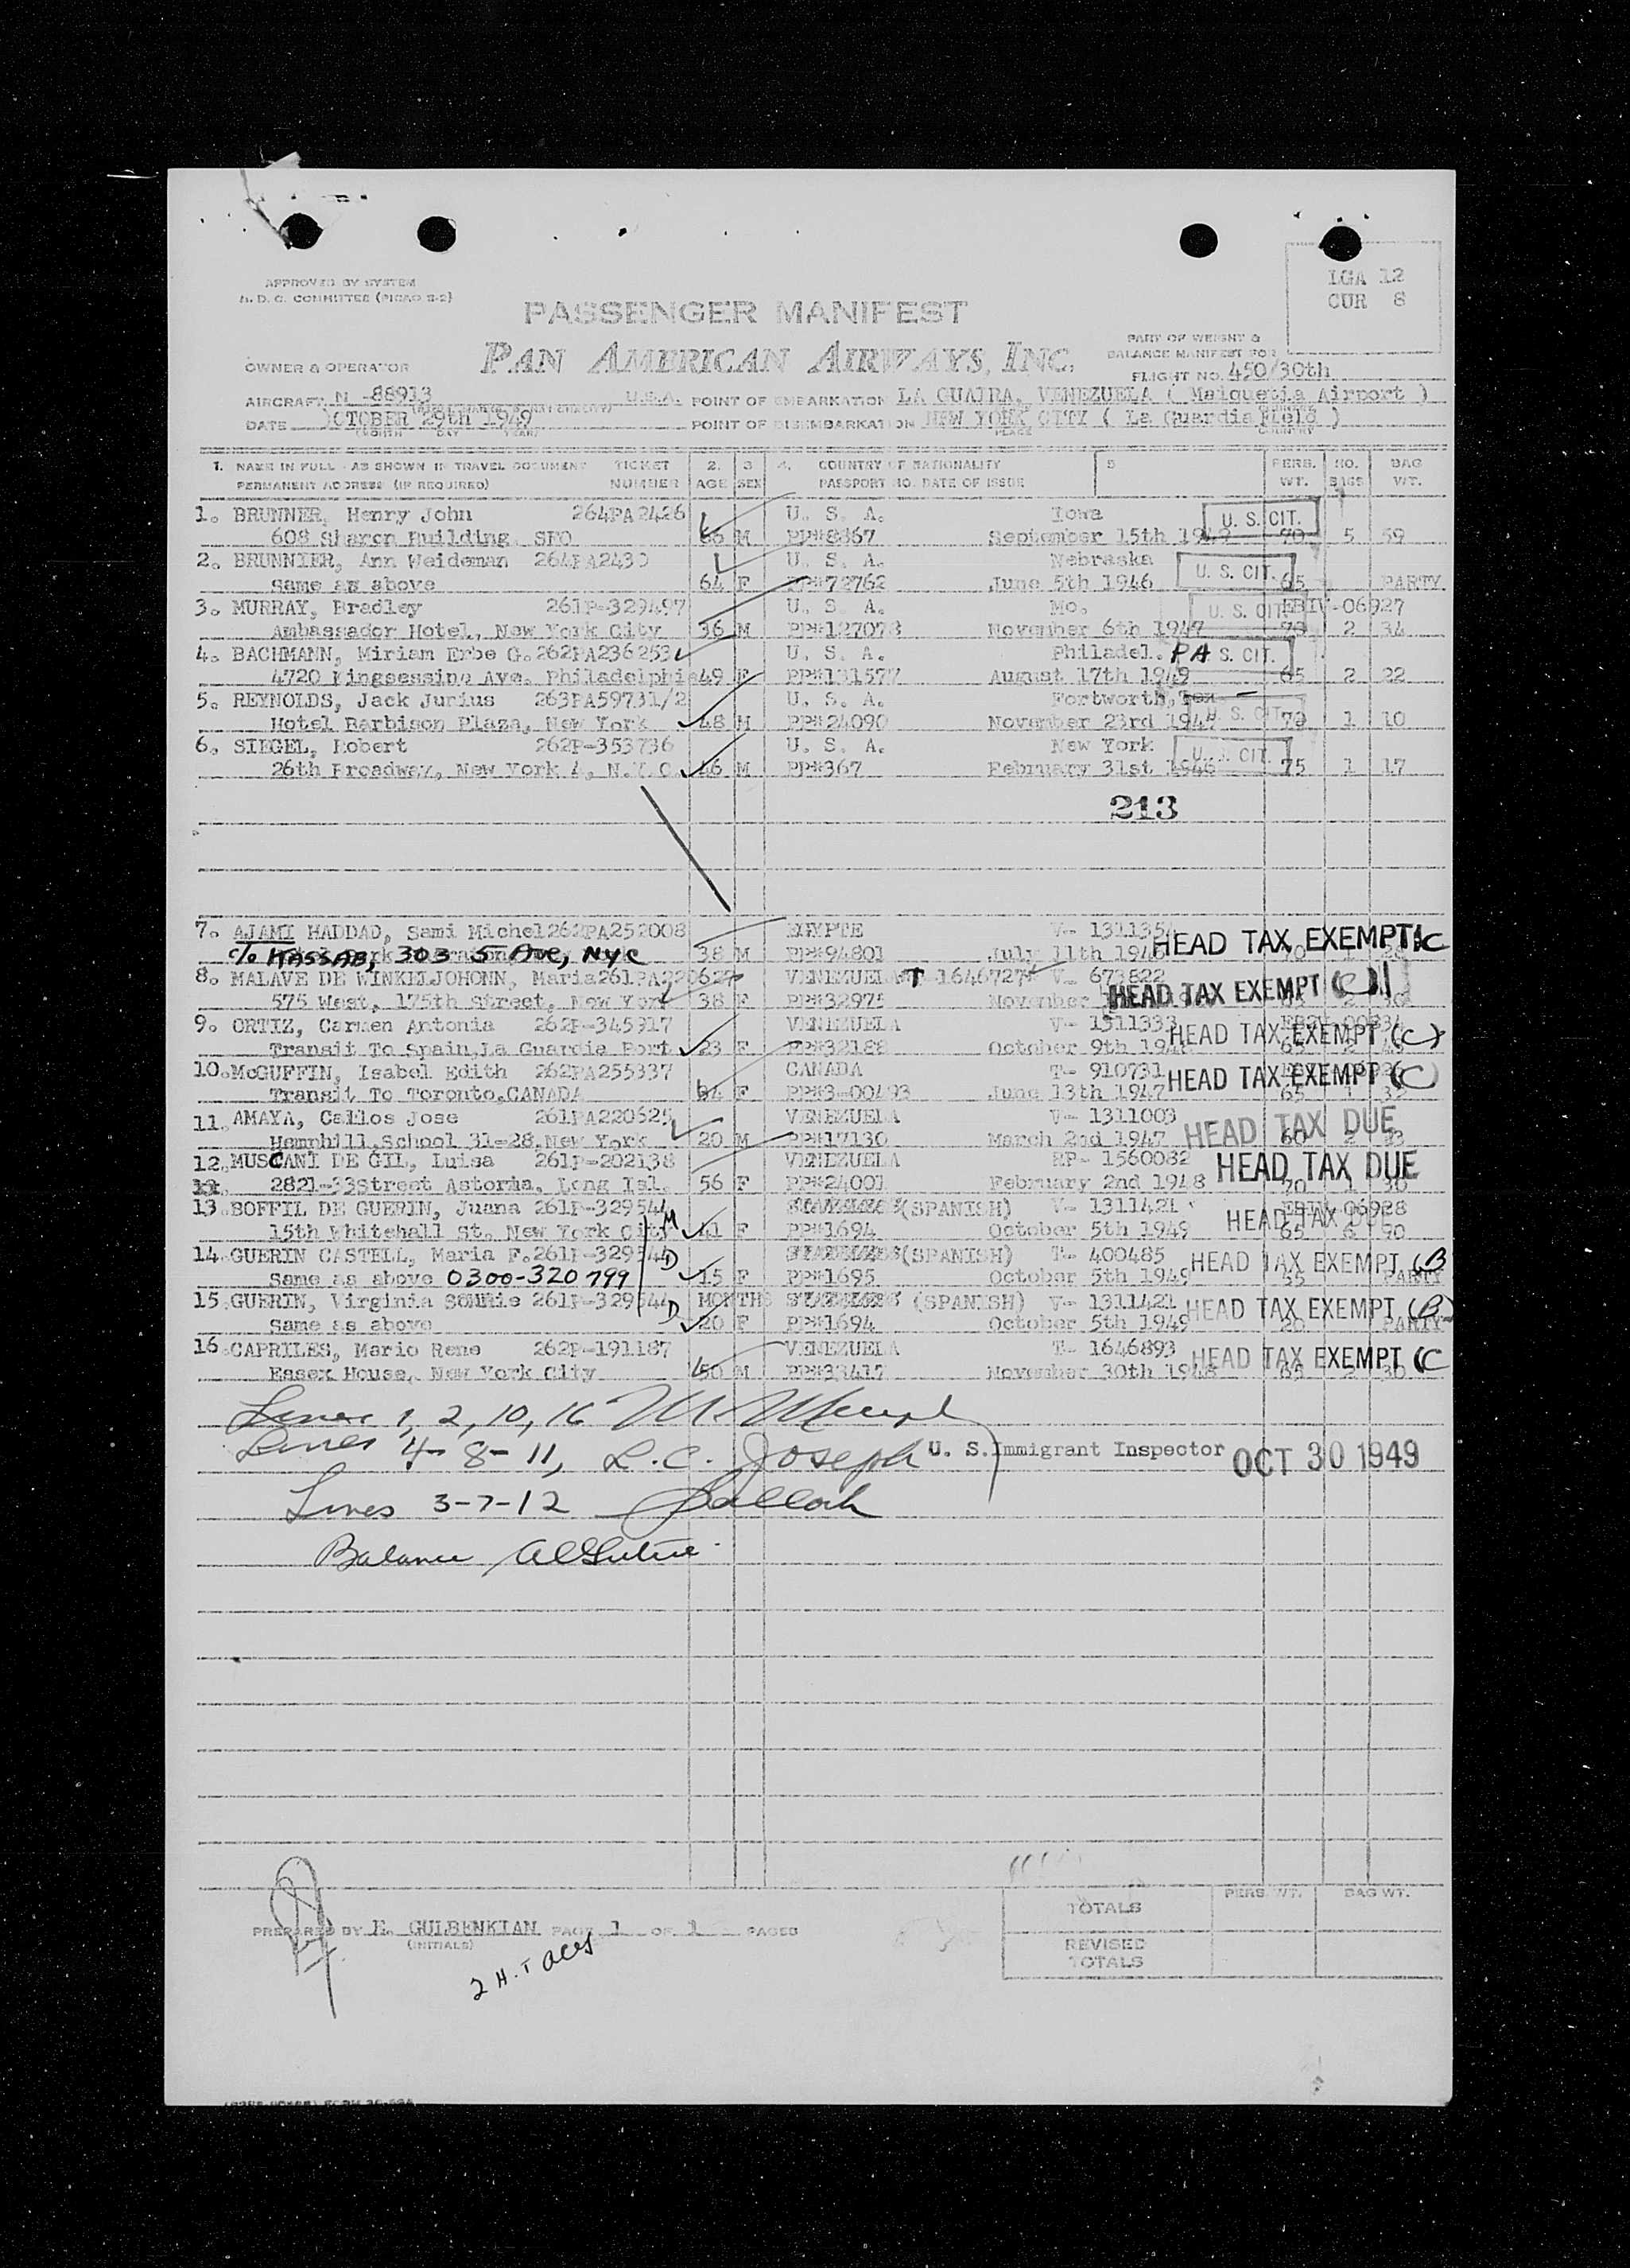 APPROVED BY SYSTEM
LGA 12
CUR 8
PASSENGER MANIFEST
PART OF WEIGHT &
BALANCE MANIFEST FOR
OWNER & OPERATOR PAN AMERICAN AIRWAYS, INC.
FLIGHT NO. 450/30th
AIRCRAFT N -88913 U.S.A. POINT OF EMBARKATION LA GUAIRA, VENEZUELA ( Maiquetia Airport )
DATE OCTOBER 29th 1949 POINT OF DISEMBARKATION NEW YORK CITY ( La Guardia Field )
(MONTH DAY YEAR) PLACE COUNTRY
1. NAME IN FULL - AS SHOWN IN TRAVEL DOCUMENT TICKET 2. 3 4. COUNTRY OF NATIONALITY 5 PERS. NO. BAG
PERMANENT ADDRESS (IF REQUIRED) NUMBER AGE SEX PASSPORT NO. DATE OF ISSUE WT. BAGS WT.
1. BRUNNER, Henry John 264PA2426 U. S. A. Iowa U. S. CIT.
608 Sharon Building, SFO M PP#8367 September 15th 1949 70 5 59
2. BRUNNIER, Ann Weideman 264PA2430 U. S. A. Nebraska U. S. CIT.
same as above 64 F PP#72762 June 5th 1946 65 PARTY
3. MURRAY, Bradley 261P-329497 U. S. A. Mo. U. S. CIT. EBIV-06927
Ambassador Hotel, New York City 36 M PP#127078 November 6th 1947 2 34
4. BACHMANN, Miriam Erbe G. 262PA236253 U. S. A. Philadel. PA U. S. CIT.
4720 Kingsessing Ave. Philadelphia 49 F PP#131577 August 17th 1949 65 2 22
5. REYNOLDS, Jack Jurius 263PA59731/2 U. S. A. Fortworth, Tex U. S. CIT.
Hotel Barbison Plaza, New York 48 M PP#24090 November 23rd 1 10
6. SIEGEL, Robert 262P-353736 U. S. A. New York U. S. CIT.
26th Broadway, New York 4, N.Y.C. 46 M PP#367 February 31st 1946 75 1 17
213
7. AJAMI HADDAD, Sami Michel 262PA252008 EGYPTE V- 1311354 HEAD TAX EXEMPT C
c/o HASSAB, 303 5 Ave, NYC 38 M PP#94801 July 11th
8. MALAVE DE WINKELJOHONN, Maria 261PA220627 VENEZUELA T 1646727 V- 673822
575 West, 175th Street, New York 38 F PP#32975 November HEAD TAX EXEMPT (C)
9. ORTIZ, Carmen Antonia 262P-345917 VENEZUELA V- 1311333 HEAD TAX EXEMPT (C)
Transit To Spain, La Guardia Port 23 F PP#32188 October 9th
10. McGUFFIN, Isabel Edith 262PA255337 CANADA T- 910731 HEAD TAX EXEMPT (C)
Transit To Toronto, CANADA F PP#3-00493 June 13th 1947 65 1
11. AMAYA, Callos Jose 261PA220625 VENEZUELA V- 1311003 HEAD TAX DUE
Hemphill, School 31-28, New York 20 M PP#17130 March 2nd 1947 60 2
12. MUSCANI DE GIL, Luisa 261P-202138 VENEZUELA RP- 1560082 HEAD TAX DUE
2821-33Street Astoria, Long Isl. 56 F PP#24001 February 2nd 1948
13. BOFFIL DE GUERIN, Juana 261P-329544 M (SPANISH) V- 1311421 HEAD TAX DUE
15th Whitehall St. New York City 41 F PP#1694 October 5th 1949 65
14. GUERIN CASTELL, Maria F. 261P-329544 D (SPANISH) T- 400485 HEAD TAX EXEMPT (B
Same as above 0300-320799 15 F PP#1695 October 5th 1949 55 PARTY
15. GUERIN, Virginia 261P-329544 D MONTHS (SPANISH) V- 1311421 HEAD TAX EXEMPT (B)
Same as above 20 F PP#1694 October 5th 1949 20 PARTY
16. CAPRILES, Mario Rene 262P-191187 VENEZUELA T- 1646893 HEAD TAX EXEMPT (C
Essex House, New York City 50 M PP#33417 November 30th 1948 65 2 30
Lines 1, 2, 10, 16
Lines 4- 8- 11, L.C. Joseph U. S. Immigrant Inspector OCT 30 1949
Lines 3-7-12
Balance
TOTALS PERS. WT. BAG WT.
PREPARED BY E. GULBENKIAN PAGE 1 OF 1 PAGES
(INITIALS)
REVISED
TOTALS
2 H.T